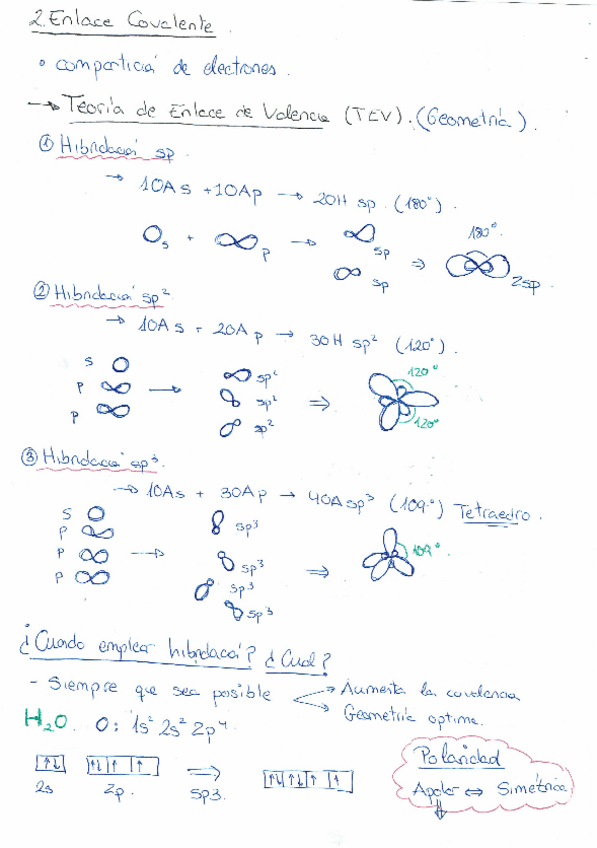 2. Enlace Covalente.
• compartición de electrones.
→ Teoría de Enlace de Valencia (TEV). (Geometría).
① Hibridación sp.
→ 1OA s + 1OA p → 2OH sp. (180°).
180°.
s + p → sp
sp ⇒ 2sp.
② Hibridación sp²
→ 1OA s + 2OA p → 3OH sp² (120°).
s
p → sp² ⇒ 120°
p sp² 120°
sp²
③ Hibridación sp³.
→ 1OA s + 3OA p → 4OA sp³ (109°) Tetraedro.
s
p sp³
p → sp³ ⇒ 109°
p sp³
sp³
¿Cuándo emplear hibridación? ¿Cuál?
- Siempre que sea posible → Aumenta la covalencia
→ Geometría optima.
H₂O. O: 1s² 2s² 2p⁴
↑↓ ↑↓ ↑ ↑ ⇒ ↑↓ ↑↓ ↑ ↑
2s 2p. sp3.
Polaridad
Apolar ⇔ Simétrica
⇓